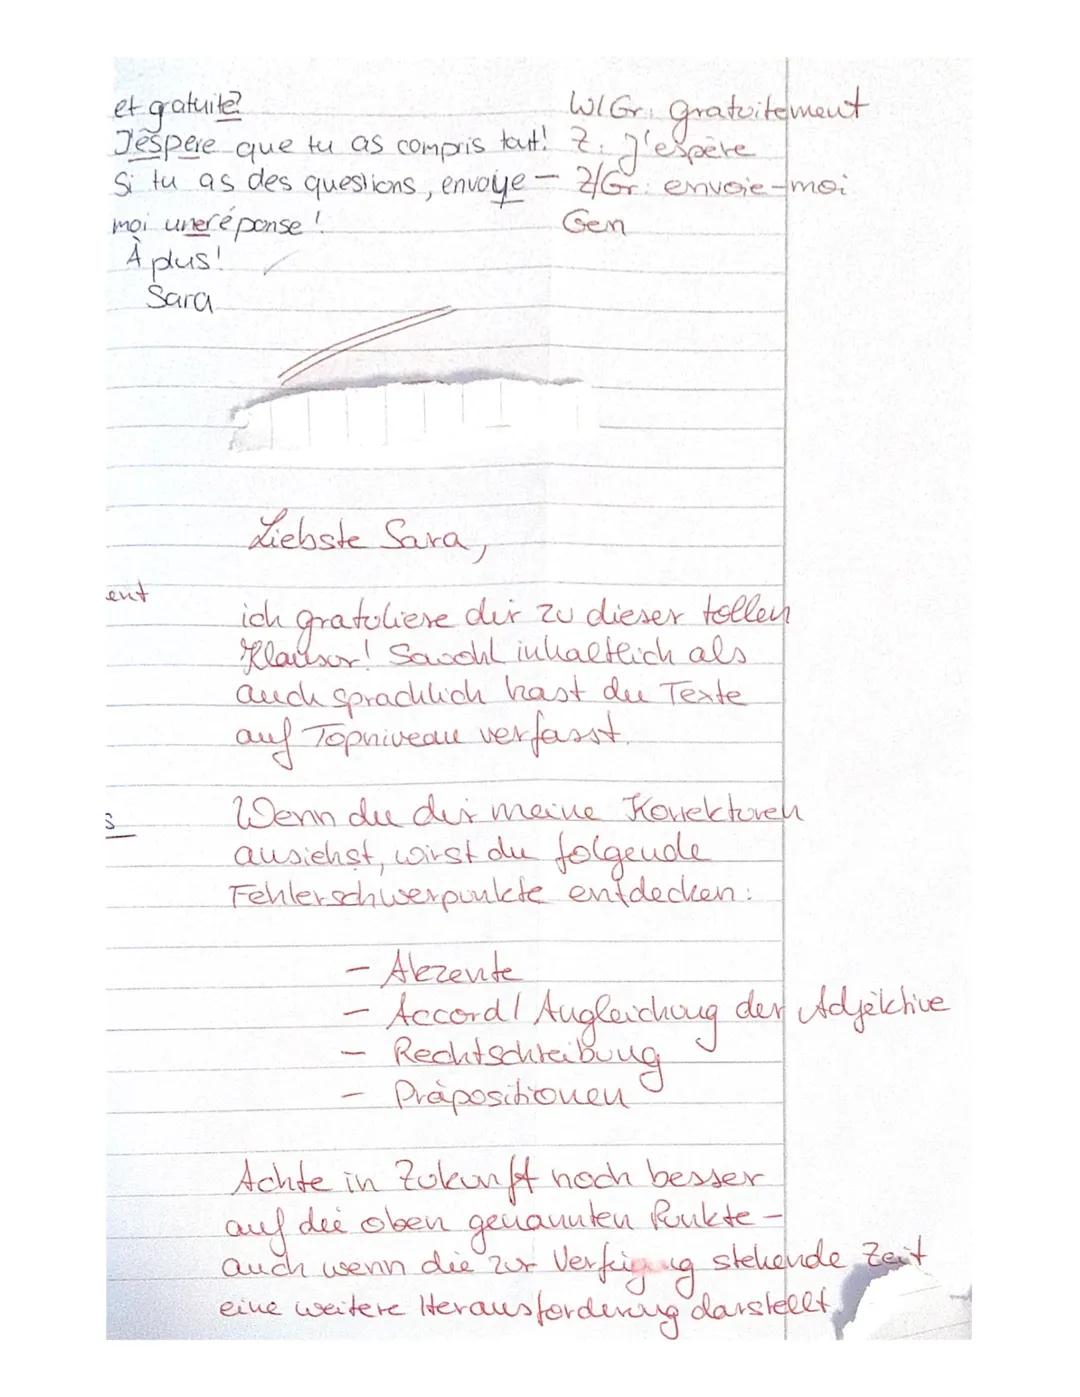 et gratuite?
W/Gr: gratuitement
J'éspere que tu as compris tout!
Z: j'espère
Si tu as des questions, envoye-
Z/Gr: envoie-moi
moi une réponse!
Gen
À plus!
Sara
Liebste Sara,
ent
ich gratuliere dir zu dieser tollen
Klausur! Sowohl inhaltlich als
auch sprachlich hast du Texte
auf Topniveau verfasst.
Wenn du dir meine Korrekturen
s
ansiehst, wirst du folgende
Fehlerschwerpunkte entdecken:
- Akzente
- Accord/Angleichung der Adjektive
- Rechtschreibung
- Präpositionen
Achte in Zukunft noch besser
auf die oben genannten Punkte -
auch wenn die zur Verfügung stehende Zeit
eine weitere Herausforderung darstellt.